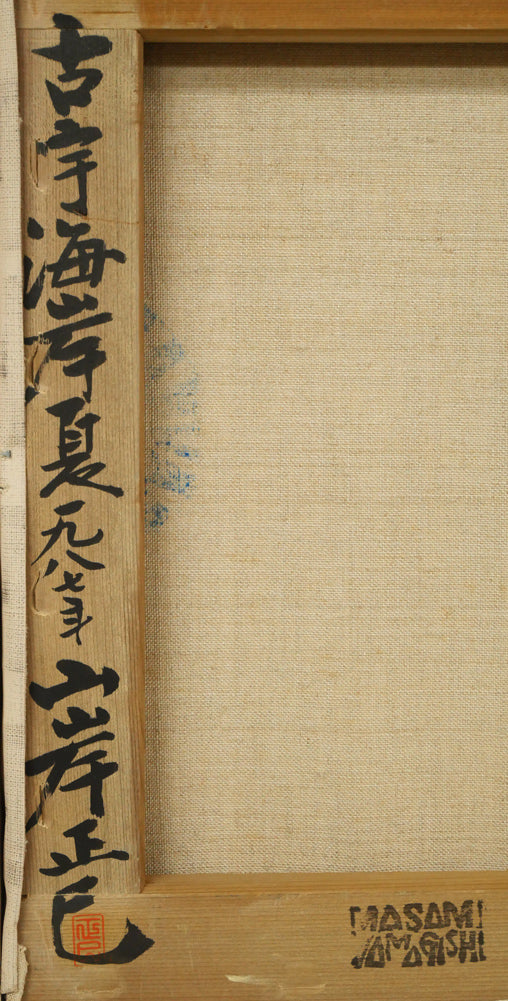 古宇海岸夏一九八七年山岸正巳
正巳
MASAMI
YAMAGISHI